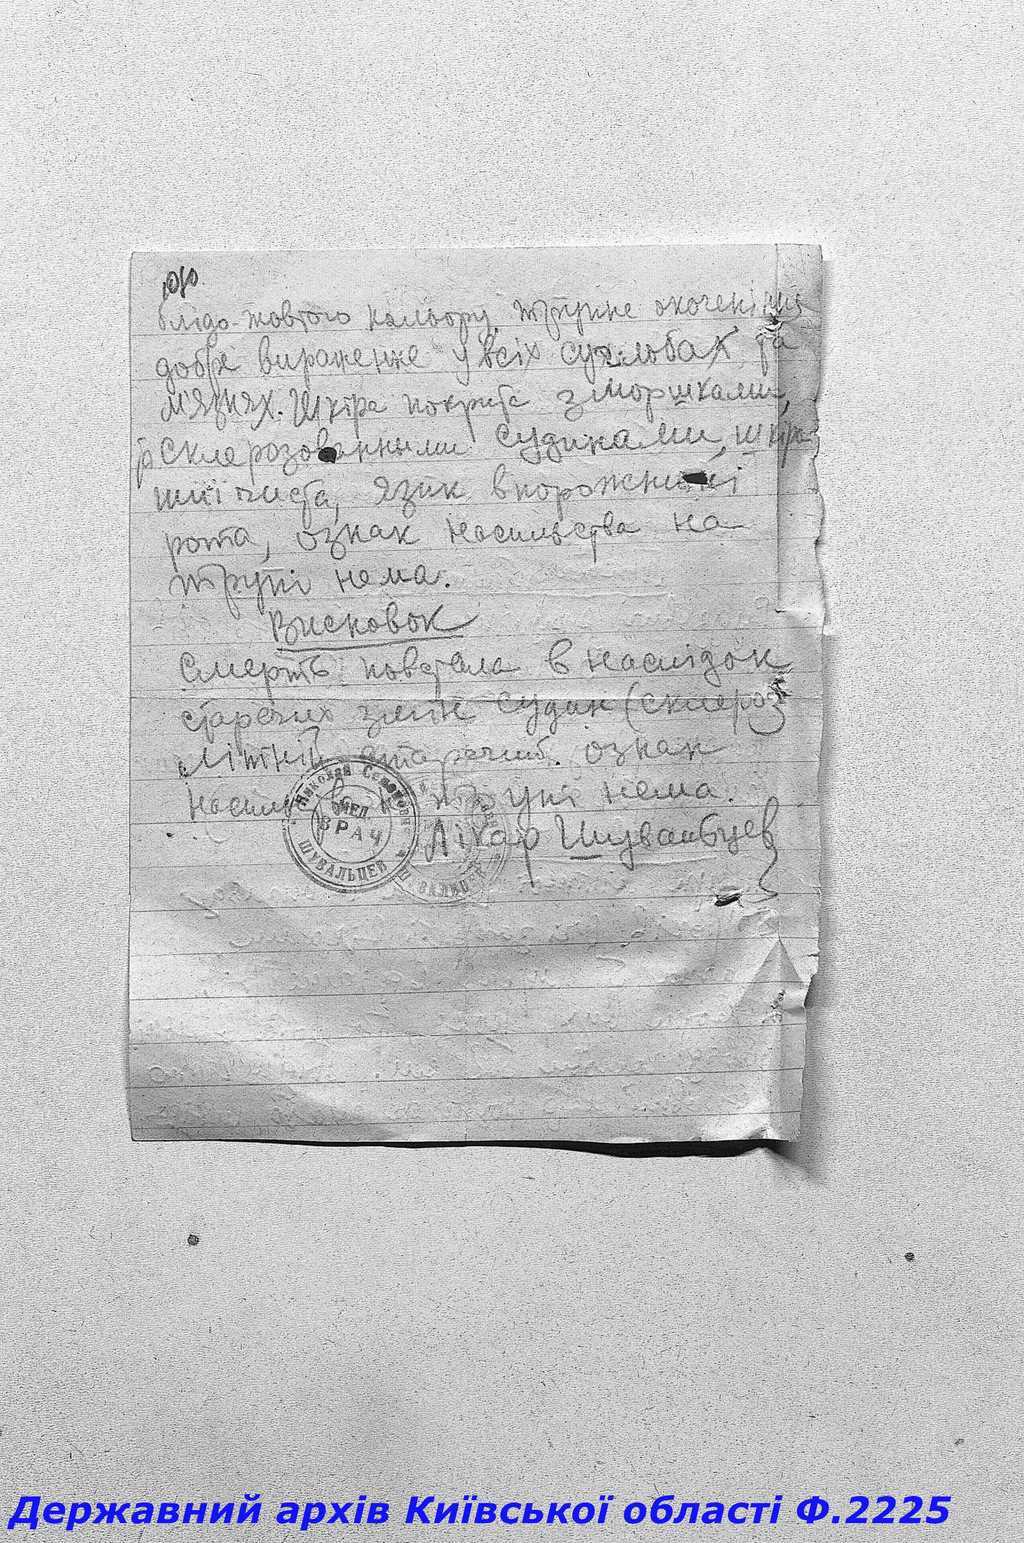 блідо-жовтого кольору, трупне окоченіння
добре вираженне у всіх суглобах та
м'язнях. Шкіра покрита зморшками,
та склерозованными судинами, шкіра
шиї чиста, язик в порожнині
рота, ознак насильства на
трупі нема.
Висновок
Смерть повстала в наслідок
старечих змін судин (склероз
ознак
на трупі нема.
Лікар Шувальцев
Николай Семенович
МЕД.
ВРАЧ
ШУВАЛЬЦЕВ
Державний архів Київської області Ф.2225